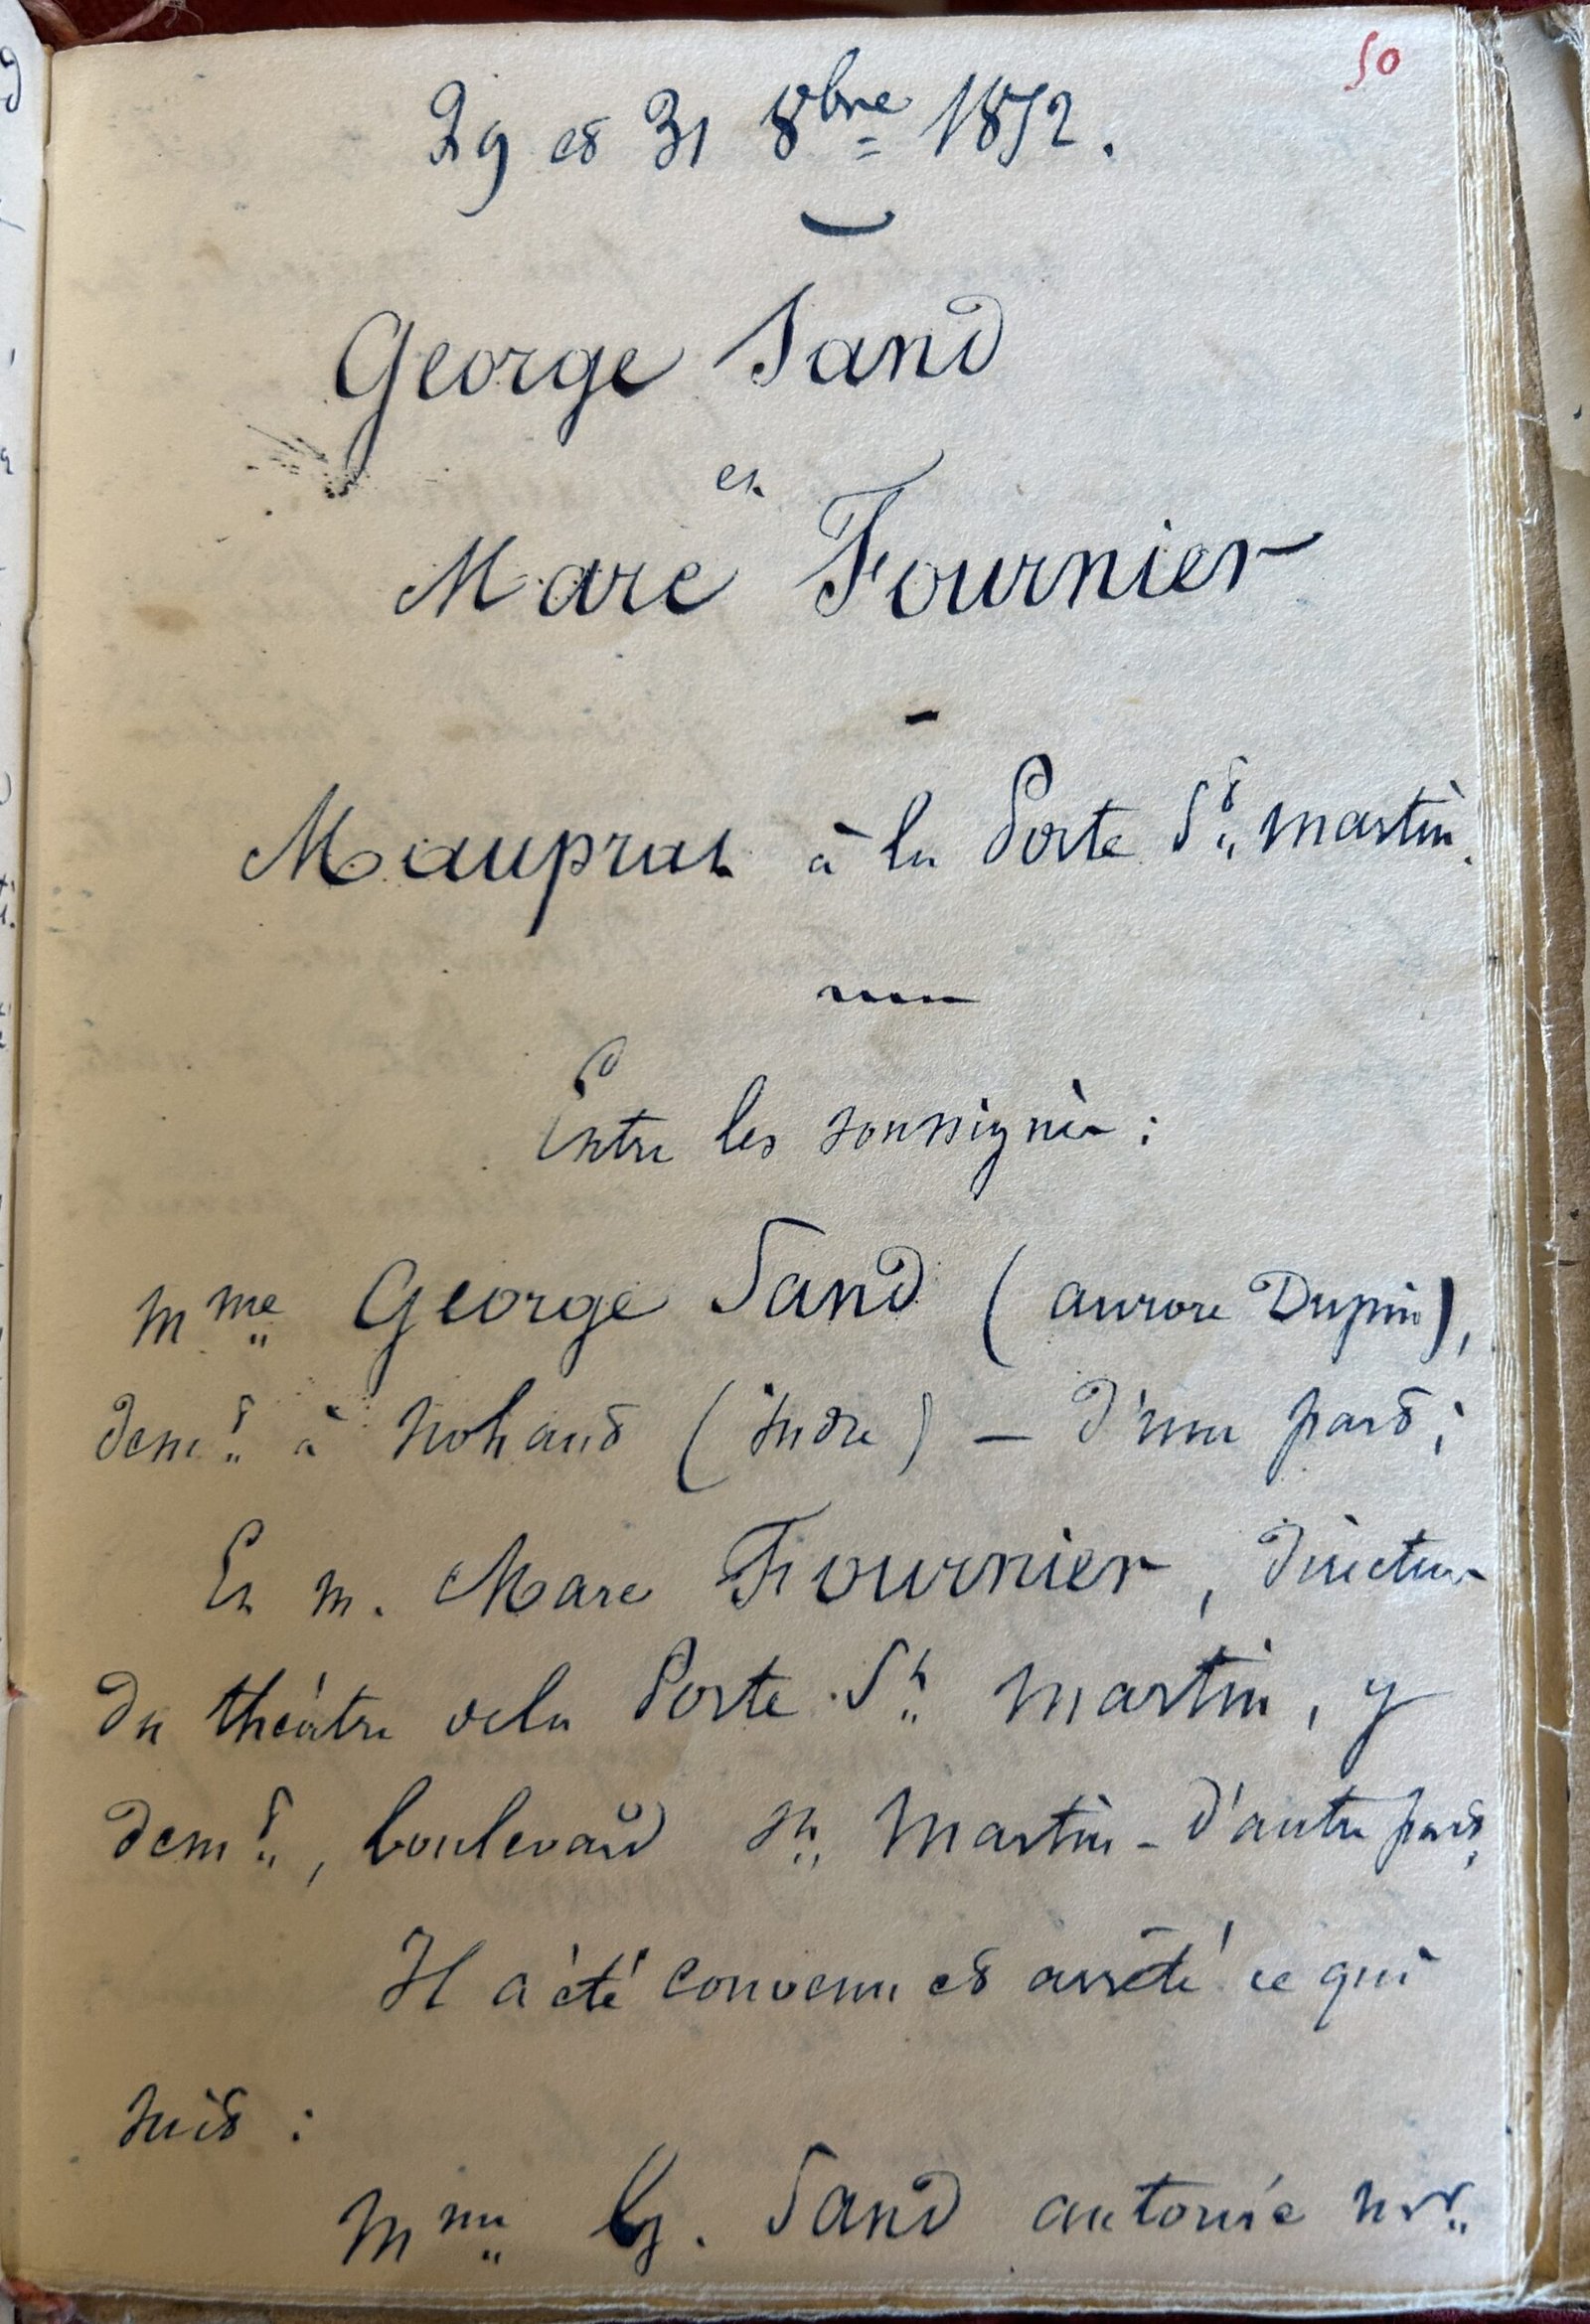 50
29 et 31 8bre 1852.
George Sand
et
Marc Fournier
Mauprat à la Porte St Martin.
Entre les soussignés :
Mme George Sand (Aurore Dupin),
demt à Nohant (Indre) — d'une part ;
Et M. Marc Fournier, Directeur
du théâtre de la Porte St Martin, y
demt, boulevard St Martin - d'autre part,
Il a été convenu et arrêté ce qui
suit :
Mme G. Sand autorise